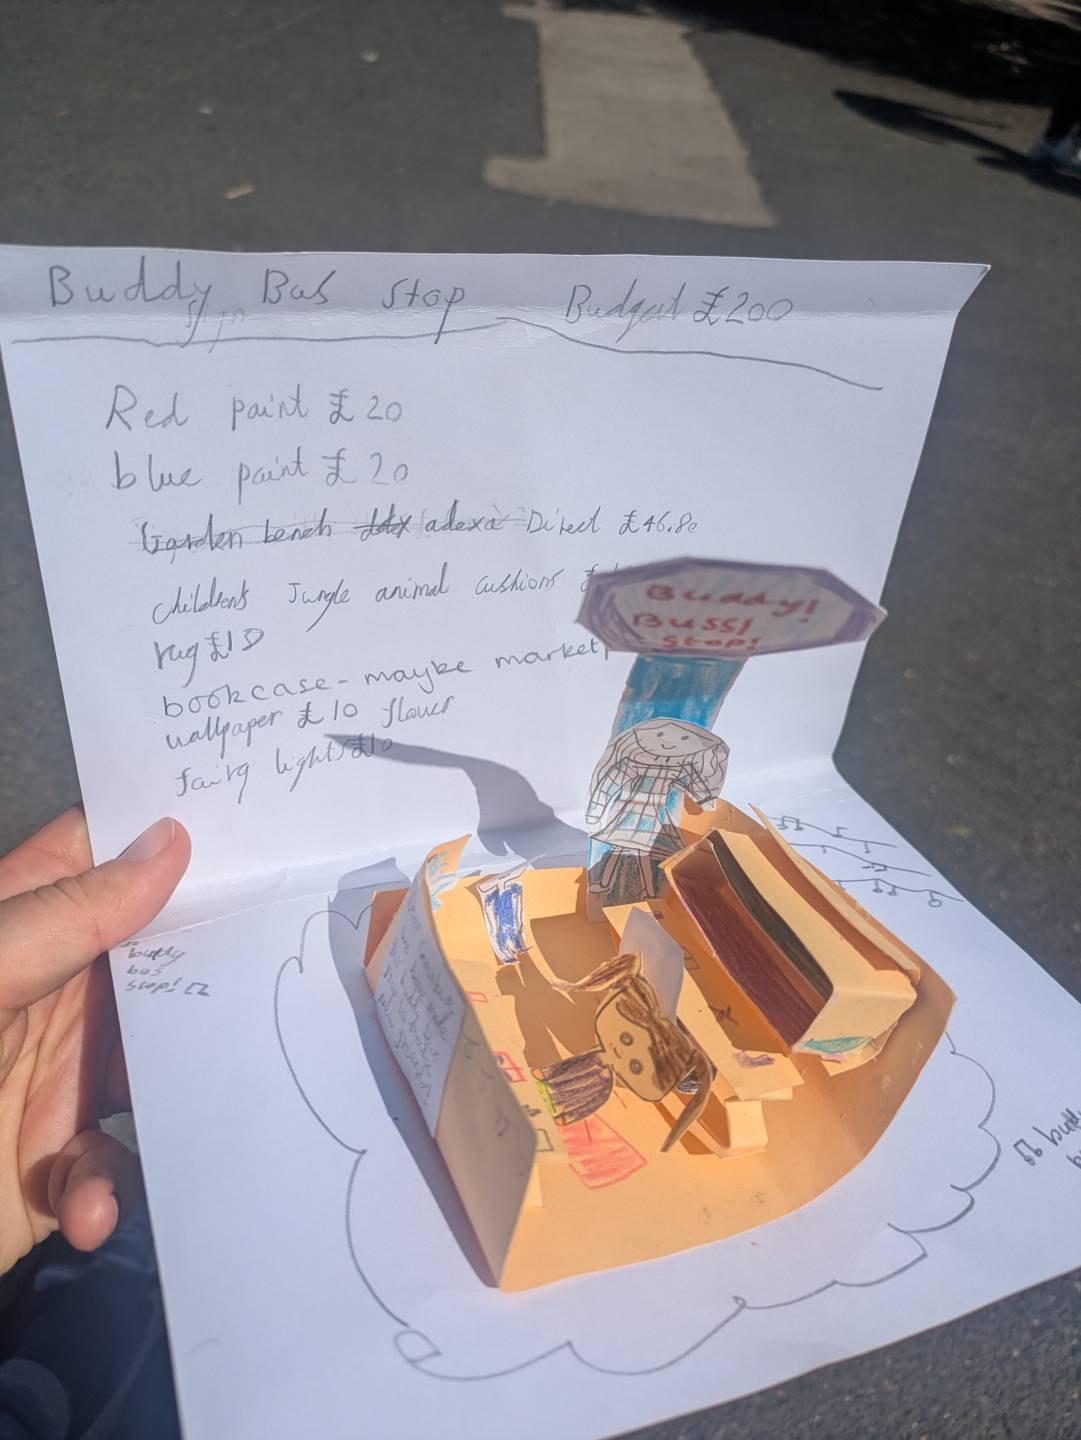 Buddy Bus Stop Budget £200
sign
Red paint £20
blue paint £20
Garden bench adexa Direct £46.80
childrens Jungle animal cushions £
rug £10
bookcase - maybe market
wallpaper £10 flower
fairy lights £10
Buddy!
BUSS!
Stop!
buddy
bus
stop!
we have made
buddy